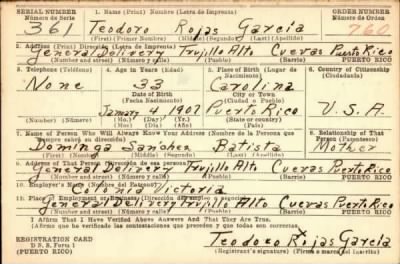 SERIAL NUMBER 1. Name (Print) Nombre (Letra de Imprenta) ORDER NUMBER
Número de Serie Número de Orden
361 Teodoro Rojas Garcia 760
(First) (Primer Nombre) (Middle) (Segundo) (Last) (Apellido)
2. Address (Print) Dirección (Letra de Imprenta)
General Delivery Trujillo Alto Cuevas Puerto Rico
(Number and street) (Número y calle) (Town) (Pueblo) (Barrio) (Barrio) PUERTO RICO
3. Telephone (Teléfono) 4. Age in Years (Edad) 5. Place of Birth (Lugar de Nacimiento) 6. Country of Citizenship (Ciudadanía)
None 33 Carolina
Date of Birth City or Town
(Fecha Nacimiento) (Ciudad o Pueblo)
January 4 1907 Puerto Rico U.S.A.
(Number) (Número) (Mo.) (Day) (Yr.) State or country
(Mes) (Día) (Año) (Estado o país)
7. Name of Person Who Will Always Know Your Address (Nombre de la Persona que siempre sabrá su dirección) 8. Relationship of That Person (Parentesco)
Dominga Sanchez Batista Mother
(First) (Nombre) (Middle) (Segundo) (Last) (Apellido)
9. Address of That Person (Dirección de esa persona)
General Delivery Trujillo Alto Cuevas Puerto Rico
(Number and street) (Número y calle) (Town) (Pueblo) (Barrio) (Barrio) PUERTO RICO
10. Employer's Name (Nombre del Patrono)
Colonia Victoria
11. Place of Employment or Business (Dirección del empleo o negocio)
General Delivery Trujillo Alto Cuevas Puerto Rico
(Number and street) (Número y calle) (Town) (Pueblo) (Barrio) (Barrio) PUERTO RICO
I Affirm That I Have Verified Above Answers And That They Are True.
(Afirmo que he verificado las contestaciones que preceden y que todas son correctas.)
REGISTRATION CARD
D. S. S. Form 1
(PUERTO RICO)
Teodoro Rojas Garcia
(Registrant's signature) (Firma o marca del inscrito)